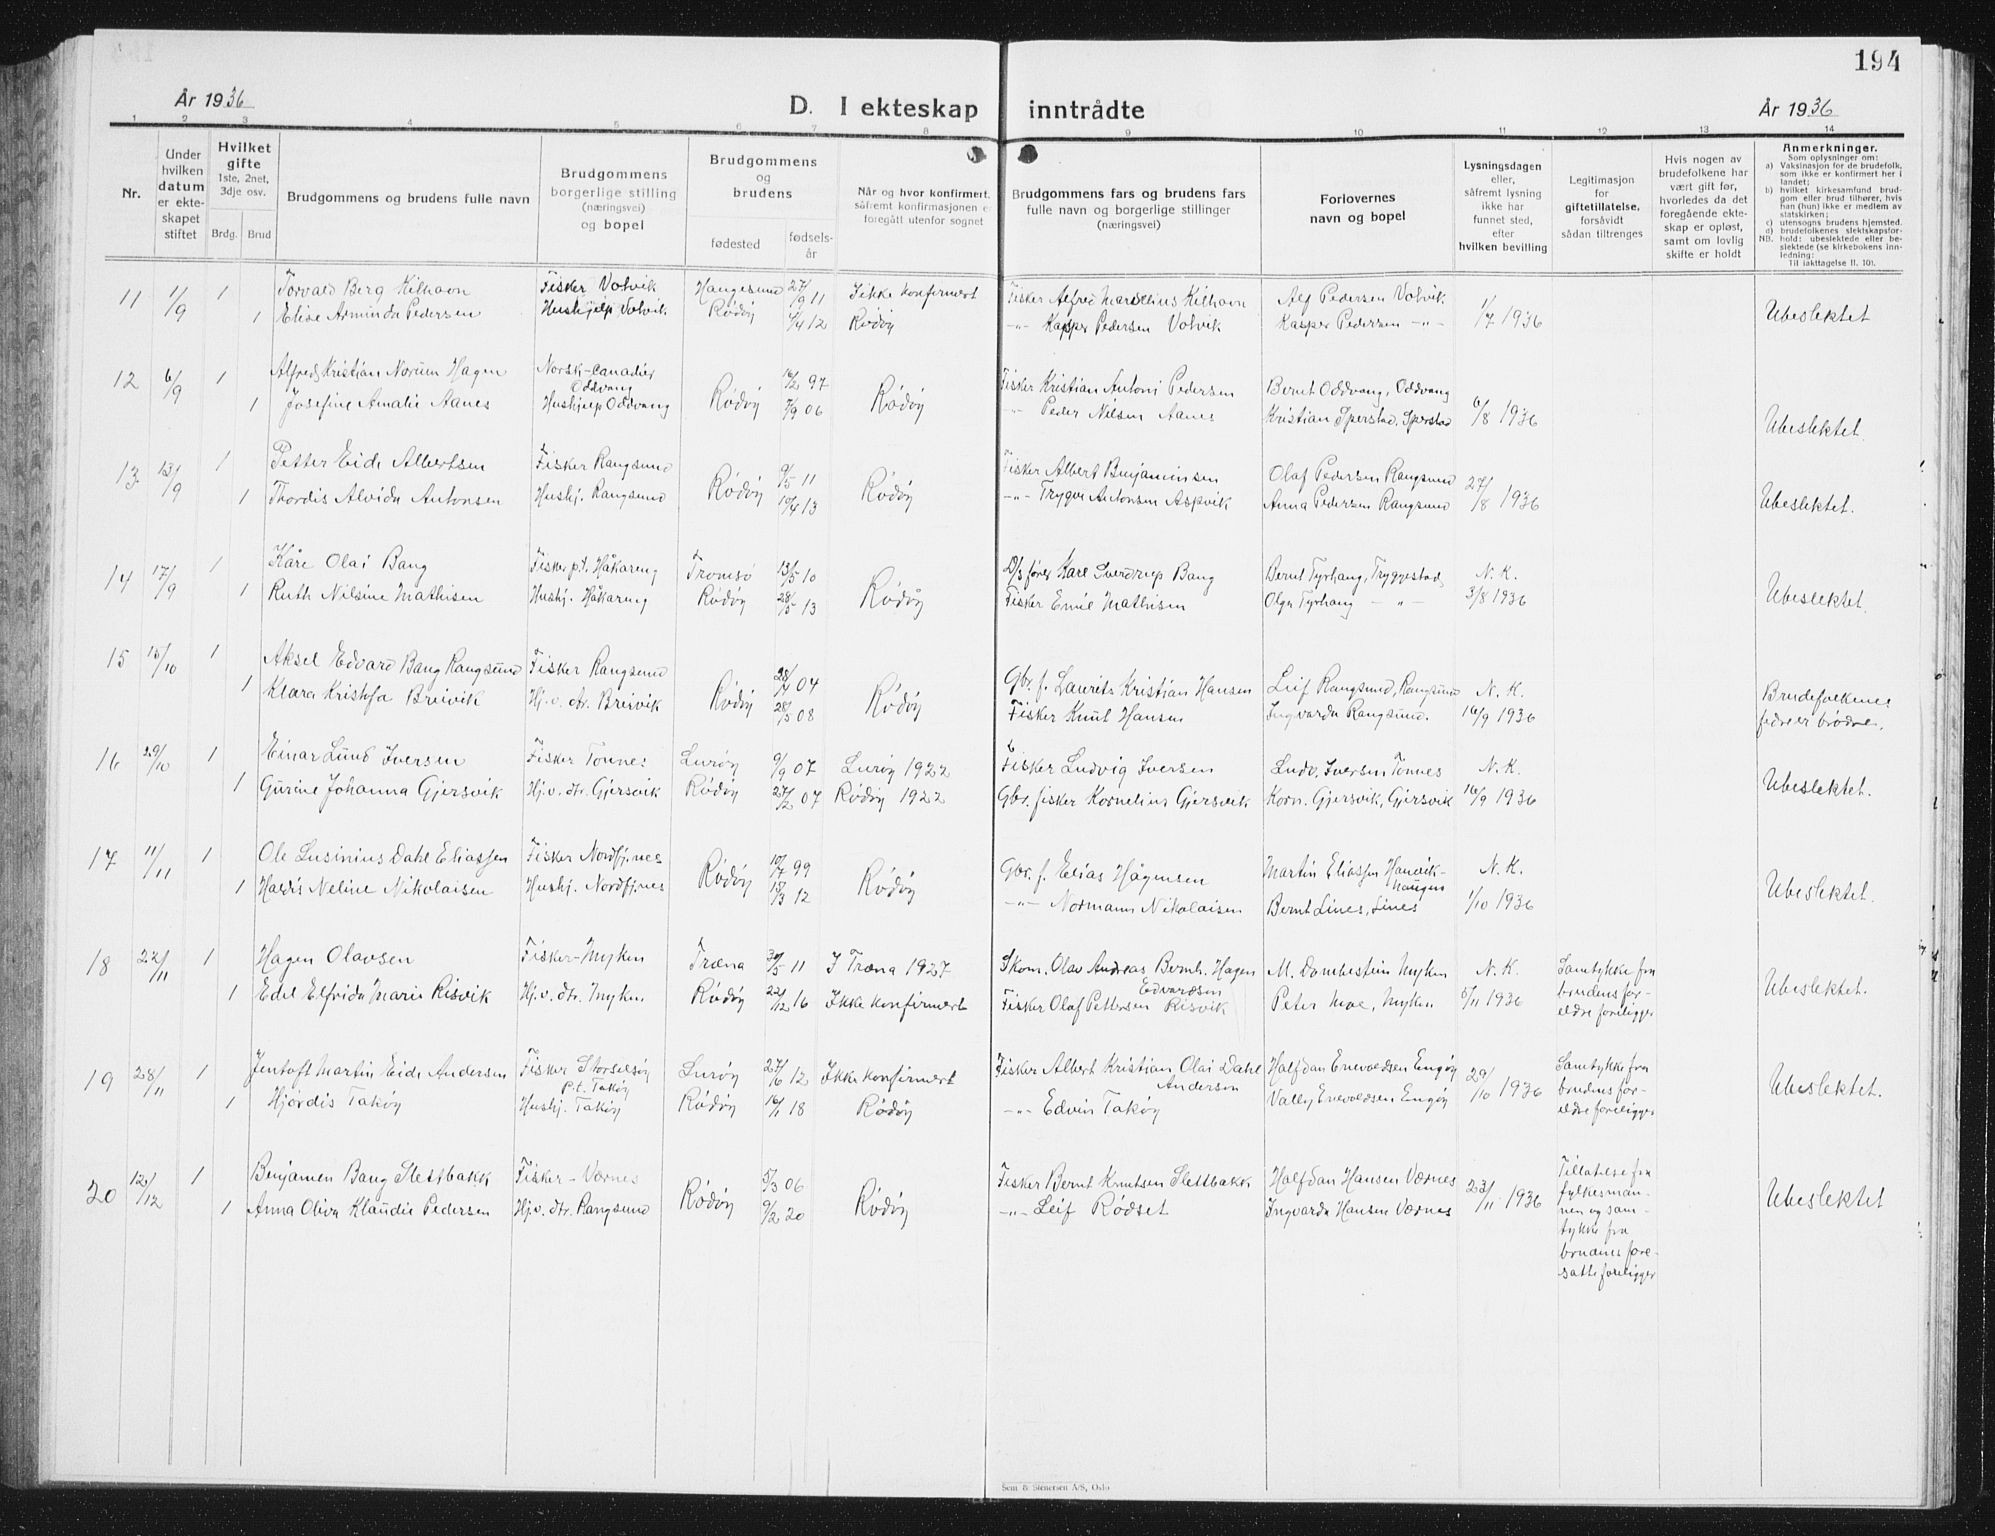 194
År 1936
D. I ekteskap inntrådte
År 1936
1 2 3 4 5 6 7 8 9 10 11 12 13 14
Nr.
Under hvilken datum er ekteskapet stiftet
Hvilket gifte 1ste, 2net, 3dje osv.
Brdg. Brud
Brudgommens og brudens fulle navn
Brudgommens borgerlige stilling (næringsvei) og bopel
Brudgommens og brudens
fødested
fødselsår
Når og hvor konfirmert, såfremt konfirmasjonen er foregått utenfor sognet
Brudgommens fars og brudens fars fulle navn og borgerlige stillinger (næringsvei)
Forlovernes navn og bopel
Lysningsdagen eller, såfremt lysning ikke har funnet sted, efter hvilken bevilling
Legitimasjon for giftetillatelse, forsåvidt sådan tiltrenges
Hvis nogen av brudefolkene har vært gift før, hvorledes da det foregående ekteskap er opløst, samt om lovlig skifte er holdt
Anmerkninger.
Som oplysninger om:
a) Vaksinasjon for de brudefolk, som ikke er konfirmert her i landet;
b) hvilket kirkesamfund brudgom eller brud tilhører, hvis han (hun) ikke er medlem av statskirken;
c) utensogns brudens hjemsted.
d) brudefolkenes slektskapsforhold: ubeslektede eller beslektede (se kirkebokens innledning:
NB.
Til iakttagelse II. 10).
11 11/9 1 Torvald Berg Kilhavn Fisker Volvik Haugesund 27/9 11 Ikke konfirmert Fisker Alfred Marselius Kilhavn Alf Pedersen Volvik 1/7 1936 Ubeslektet
1 Elise Arminda Pedersen Hushjelp Volvik Rødøy 4/4 12 Rødøy -"- Kasper Pedersen Volvik Kasper Pedersen -"-
12 6/9 1 Alfred Kristian Norum Hagen Norsk-canadier Oddvang Rødøy 16/2 97 Rødøy Fisker Kristian Antoni Pedersen Bernt Oddvang, Oddvang 6/8 1936 Ubeslektet.
1 Josefine Amalie Aanes Hushjelp Oddvang 7/9 06 " Peder Nilsen Aanes Kristian Sperstad, Sperstad
13 13/9 1 Petter Eide Albertsen Fisker Rangsund Rødøy 9/5 11 Rødøy Fisker Albert Benjaminsen Olaf Pedersen Rangsund 27/8 1936 Ubeslektet.
1 Thordis Alvida Antonsen Hushj. Rangsund 19/4 13 -"- Trygve Antonsen Aspvik Anna Pedersen Rangsund
14 17/9 1 Kåre Olai Bang Fisker p.t. Håkareng Tromsø 13/5 10 Rødøy D/s fører Karl Sverdrup Bang Bernt Tyrhaug, Tryggestad N. K. Ubeslektet.
1 Ruth Nilsine Mathisen Hushj. Håkareng Rødøy 28/5 13 Fisker Emil Mathisen Olga Tyrhaug -"- 3/8 1936
15 15/10 1 Aksel Edvard Bang Rangsund Fisker Rangsund Rødøy 28/7 04 Rødøy Gbr. f. Laurits Kristian Hansen Leif Rangsund, Rangsund N. K. Brudefolkenes
1 Klara Kristofa Breivik Hj. v. dtr. Breivik 28/5 08 Fisker Knut Hansen Ingvarda Rangsund. 16/9 1936 fedre er brødre.
16 29/10 1 Einar Lund Iversen Fisker Tonnes Lurøy 9/9 07 Lurøy 1922 Fisker Ludvig Iversen Ludv. Iversen Tonnes N. K. Ubeslektet.
1 Gurine Johanna Gjersvik Hj. v. dtr. Gjersvik Rødøy 27/2 07 Rødøy 1922 Gbr. fisker Kornelius Gjersvik Korn. Gjersvik, Gjersvik 16/9 1936
17 11/11 1 Ole Lusinius Dahl Eliassen Fisker Nordfjnes Rødøy 10/7 99 Rødøy Gbr. f. Elias Hågensen Martin Eliassen Handvikhaugen N. K. Ubeslektet.
1 Haldis Neline Nikolaisen Hushj. Nordfjnes 15/3 12 -"- Normann Nikolaisen Bernt Lines, Lines 1/10 1936
18 22/11 1 Hagen Olavsen Fisker-Myken Træna 30/5 11 I Træna 1927 Skom. Olav Andreas Bernh. Hagen Edvardsen M. Dombestein Myken N. K. Samtykke fra brudens forældre foreligger Ubeslektet.
1 Edel Elfrida Marie Risvik Hj. v. dtr. Myken Rødøy 22/12 16 Ikke konfirmert Fisker Olaf Pettersen Risvik Peter Moe, Myken 5/11 1936
19 28/11 1 Jentoft Martin Eide Andersen Fisker Storselsøy p.t. Takøy Lurøy 27/6 12 Ikke konfirmert Fisker Albert Kristian Olai Dahl Anderson Halfdan Enevoldsen Engøy 29/10 1936 Samtykke fra brudens forældre foreligger Ubeslektet.
1 Hjørdis Takøy Hushj. Takøy Rødøy 16/1 18 Rødøy -"- Edvin Takøy Vally Enevoldsen Engøy
20 12/12 1 Benjamen Bang Slettbakk Fisker - Værnes Rødøy 5/3 06 Rødøy Fisker Bernt Knutsen Slettbakk Halfdan Hansen Værnes 23/11 1936 Tillatelse fra fylkesmannen og samtykke fra brudens foresatte foreligger Ubeslektet
1 Anna Oliva Klaudie Pedersen Hj. v. dtr. Rangsund 9/2 20 -"- Leif Rødset Ingvarda Hansen Værnes
Sem & Stenersen A/S, Oslo